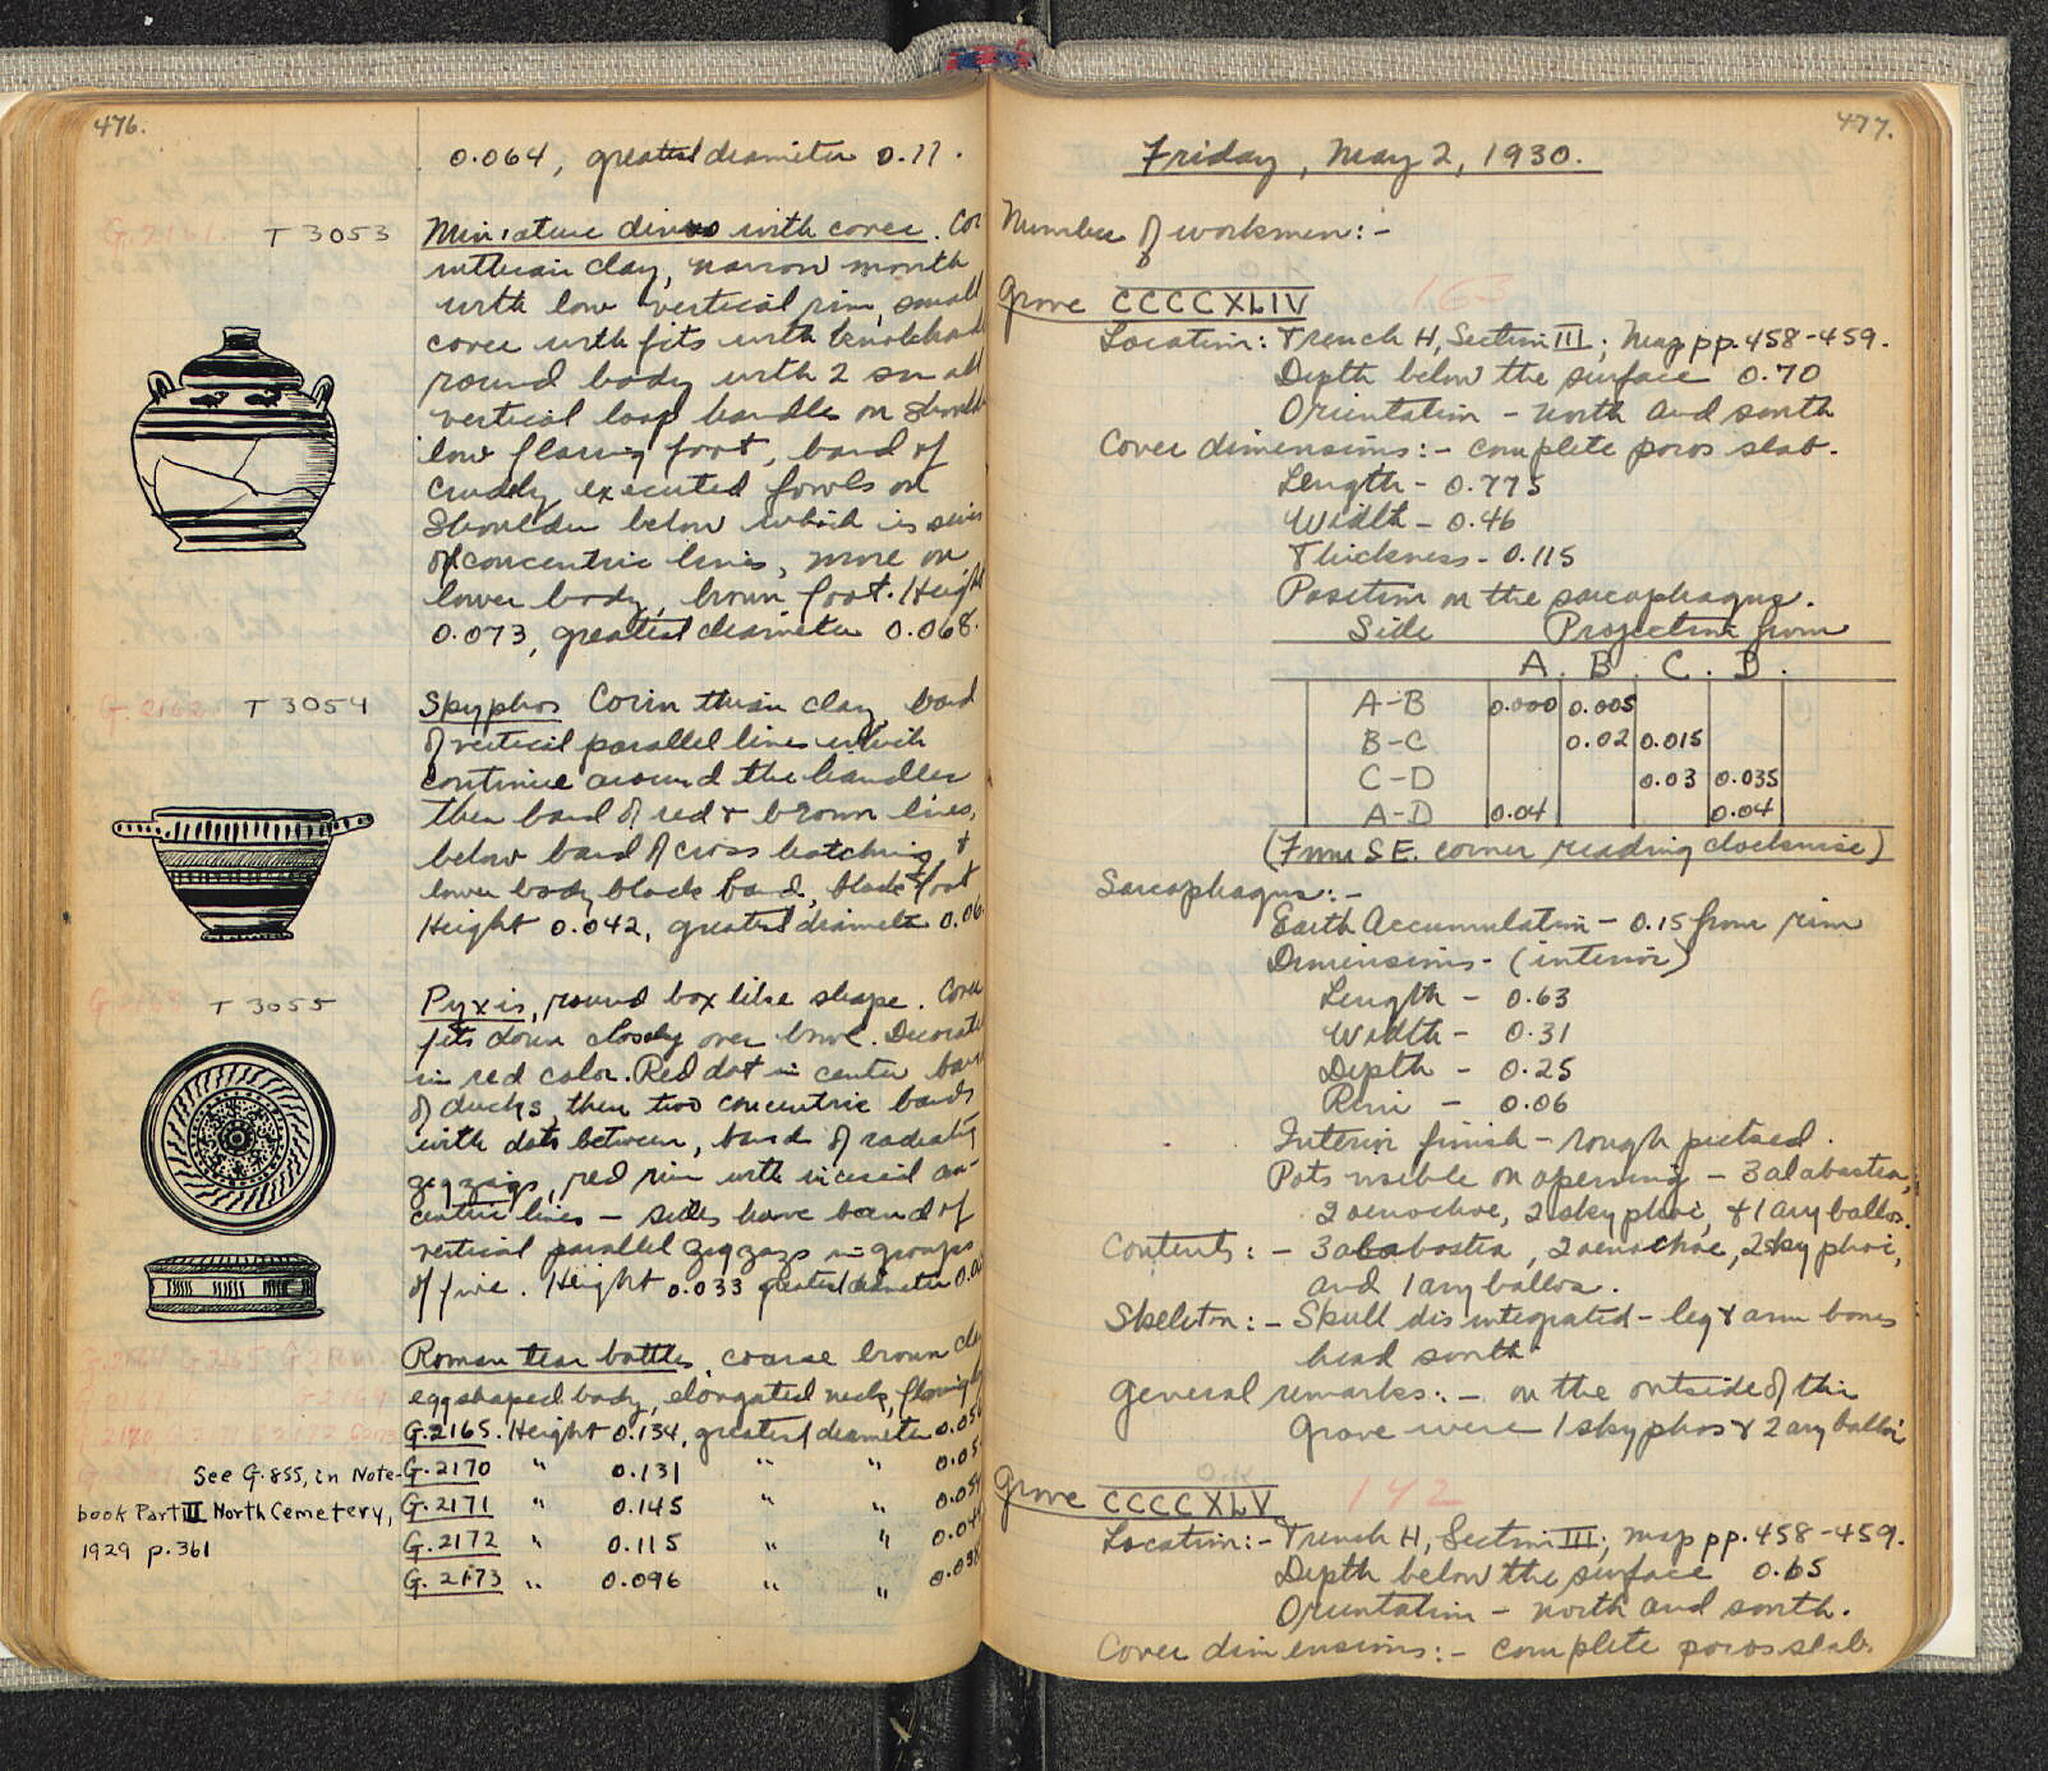 476.
0.064, greatest diameter 0.11.
G.2161. T 3053
Miniature dinos with cover. Cor
inthian clay, narrow mouth
with low vertical rim, small
cover with fits with knobhand
round body with 2 small
vertical loop handles on should
low flaring foot, band of
crudely executed fowls on
shoulder below which is series
of concentric lines, more on
lower body, brown foot. Height
0.073, greatest diameter 0.068.
G.2162 T 3054
Skyphos Corinthian clay, band
of vertical parallel lines which
continue around the handles
then band of red & brown lines,
below band of cross hatching, &
lower body black band, black foot
Height 0.042, greatest diameter 0.06
T 3055
Pyxis, round box like shape. Cover
fits down closely over bowl. Decorate
in red color. Red dot in center band
of ducks, then two concentric bands
with dots between, band of radiating
zigzags, red rim with incised con-
centric lines – sides have band of
vertical parallel zigzags in groups
of five. Height 0.033 greatest diameter
Roman tear bottles, coarse brown cla
egg shaped body, elongated neck, flaring
G.2165. Height 0.134, greatest diameter 0.05
G.2170 " 0.131 " " 0.05
G.2171 " 0.145 " " 0.054
G.2172 " 0.115 " " 0.04
G.2173 " 0.096 " " 0.038
See G.855, in Note-
book Part III North Cemetery,
1929 p.361
477.
Friday, May 2, 1930.
Number of workmen:-
Grave CCCCXLIV 163
Location: Trench H, Section III; Map pp. 458-459.
Depth below the surface 0.70
Orientation - north and south
Cover dimensions:- complete poros slab.
Length - 0.775
Width - 0.46
Thickness - 0.115
Position on the sarcophagus.
Side Projection from
A. B. C. D.
A-B 0.000 0.005
B-C 0.02 0.015
C-D 0.03 0.035
A-D 0.04 0.04
(From S.E. corner reading clockwise)
Sarcophagus:-
Earth Accumulation - 0.15 from rim
Dimensions - (interior)
Length - 0.63
Width - 0.31
Depth - 0.25
Rim - 0.06
Interior finish - rough picked.
Pots visible on opening - 3 alabastra,
2 oenochoe, 2 skyphoi, & 1 aryballos.
Contents:- 3 alabastra, 2 oenochoe, 2 skyphoi,
and 1 aryballos.
Skeleton:- Skull disintegrated - leg & arm bones
head south
General remarks:- on the outside of this
grave were 1 skyphos & 2 aryballoi
O.K.
Grave CCCCXLV 142
Location:- Trench H, Section III; map pp. 458-459.
Depth below the surface 0.65
Orientation - north and south.
Cover dimensions:- complete poros slab.